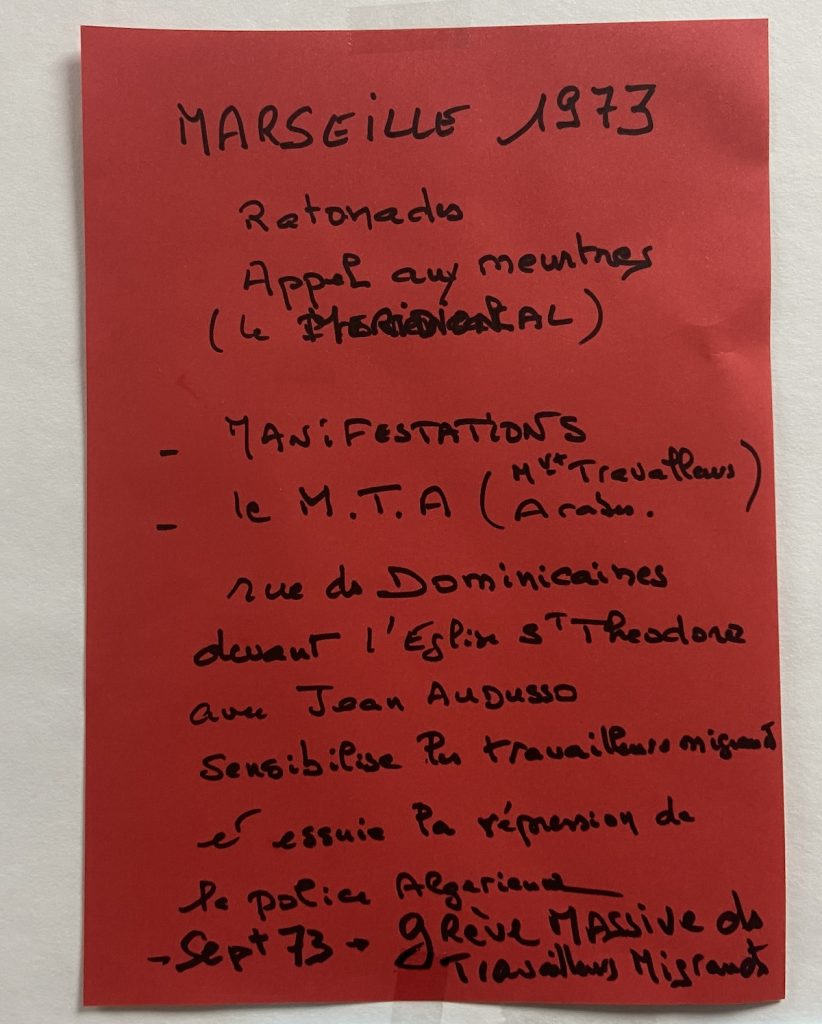 MARSEILLE 1973
Ratonades
Appel aux meurtres
(le MERIDIONAL)
- MANIFESTATIONS
- le M.T.A (Mvt Travailleurs
Arabes.)
rue des Dominicaines
devant l'Eglise St Theodore
avec Jean AUDUSSO
Sensibilise les travailleurs migrants
et essuie la répression de
la police Algerienne
- Sept 73 - grève MASSIVE des
Travailleurs Migrants